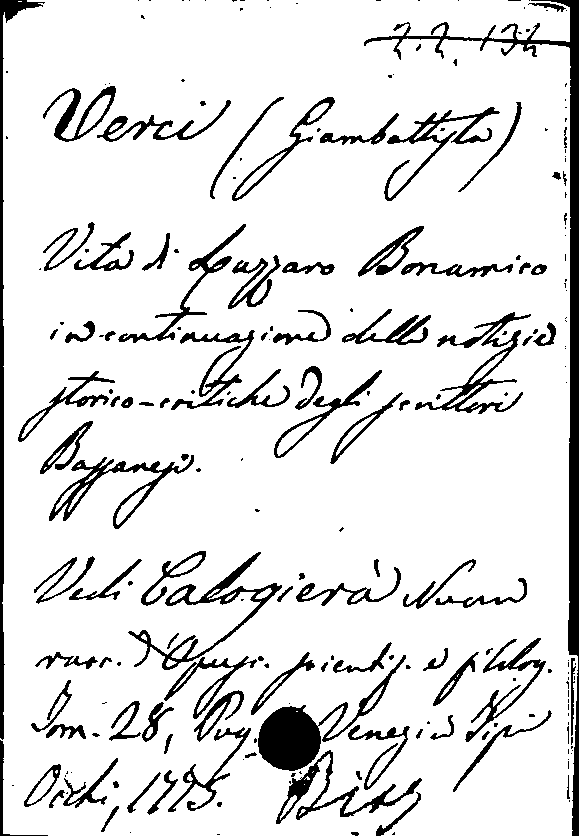 2.2.132
Verci (Giambattista)
Vita di Lazzaro Bonamico
in continuazione delle notizie
storico-critiche degli scrittori
Bassanesi.
Vedi Calogierà Nuova
racc. d'Opusc. scientif. e filolog.
Tom. 28, Venezia Tipi
Occhi, 1775.